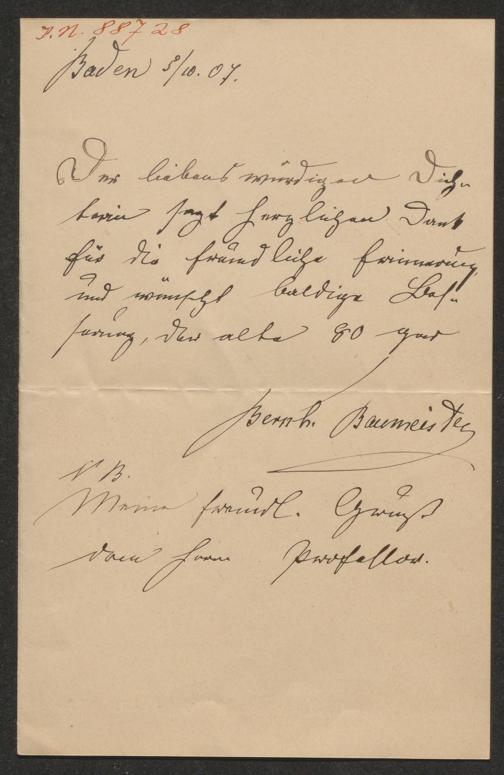 J.N. 88728
Baden 5/10. 07.
Der liebenswürdigen Dich-
terin sagt herzlichen Dank
für die freundliche Erinnerung
und wünscht baldige Bes-
serung, der alte 80 ger
Bernh. Baumeister
NB.
Meine freundl. Grüße
dem Herrn Professor.